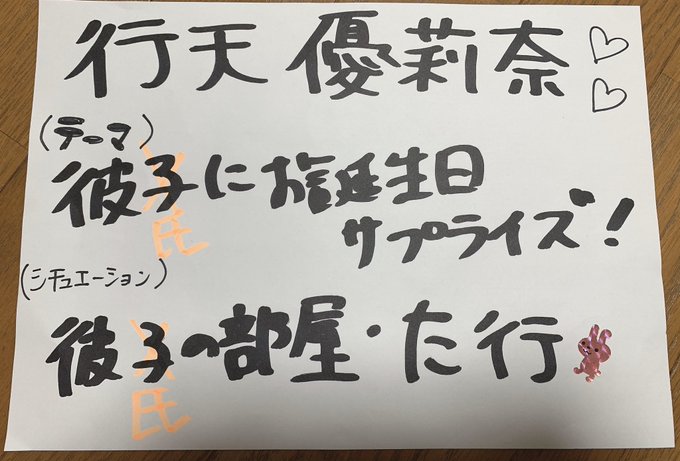 行天 優莉奈♡♡
(テーマ)
彼子氏にお誕生日
サプライズ!
(シチュエーション)
彼子氏の部屋・た行